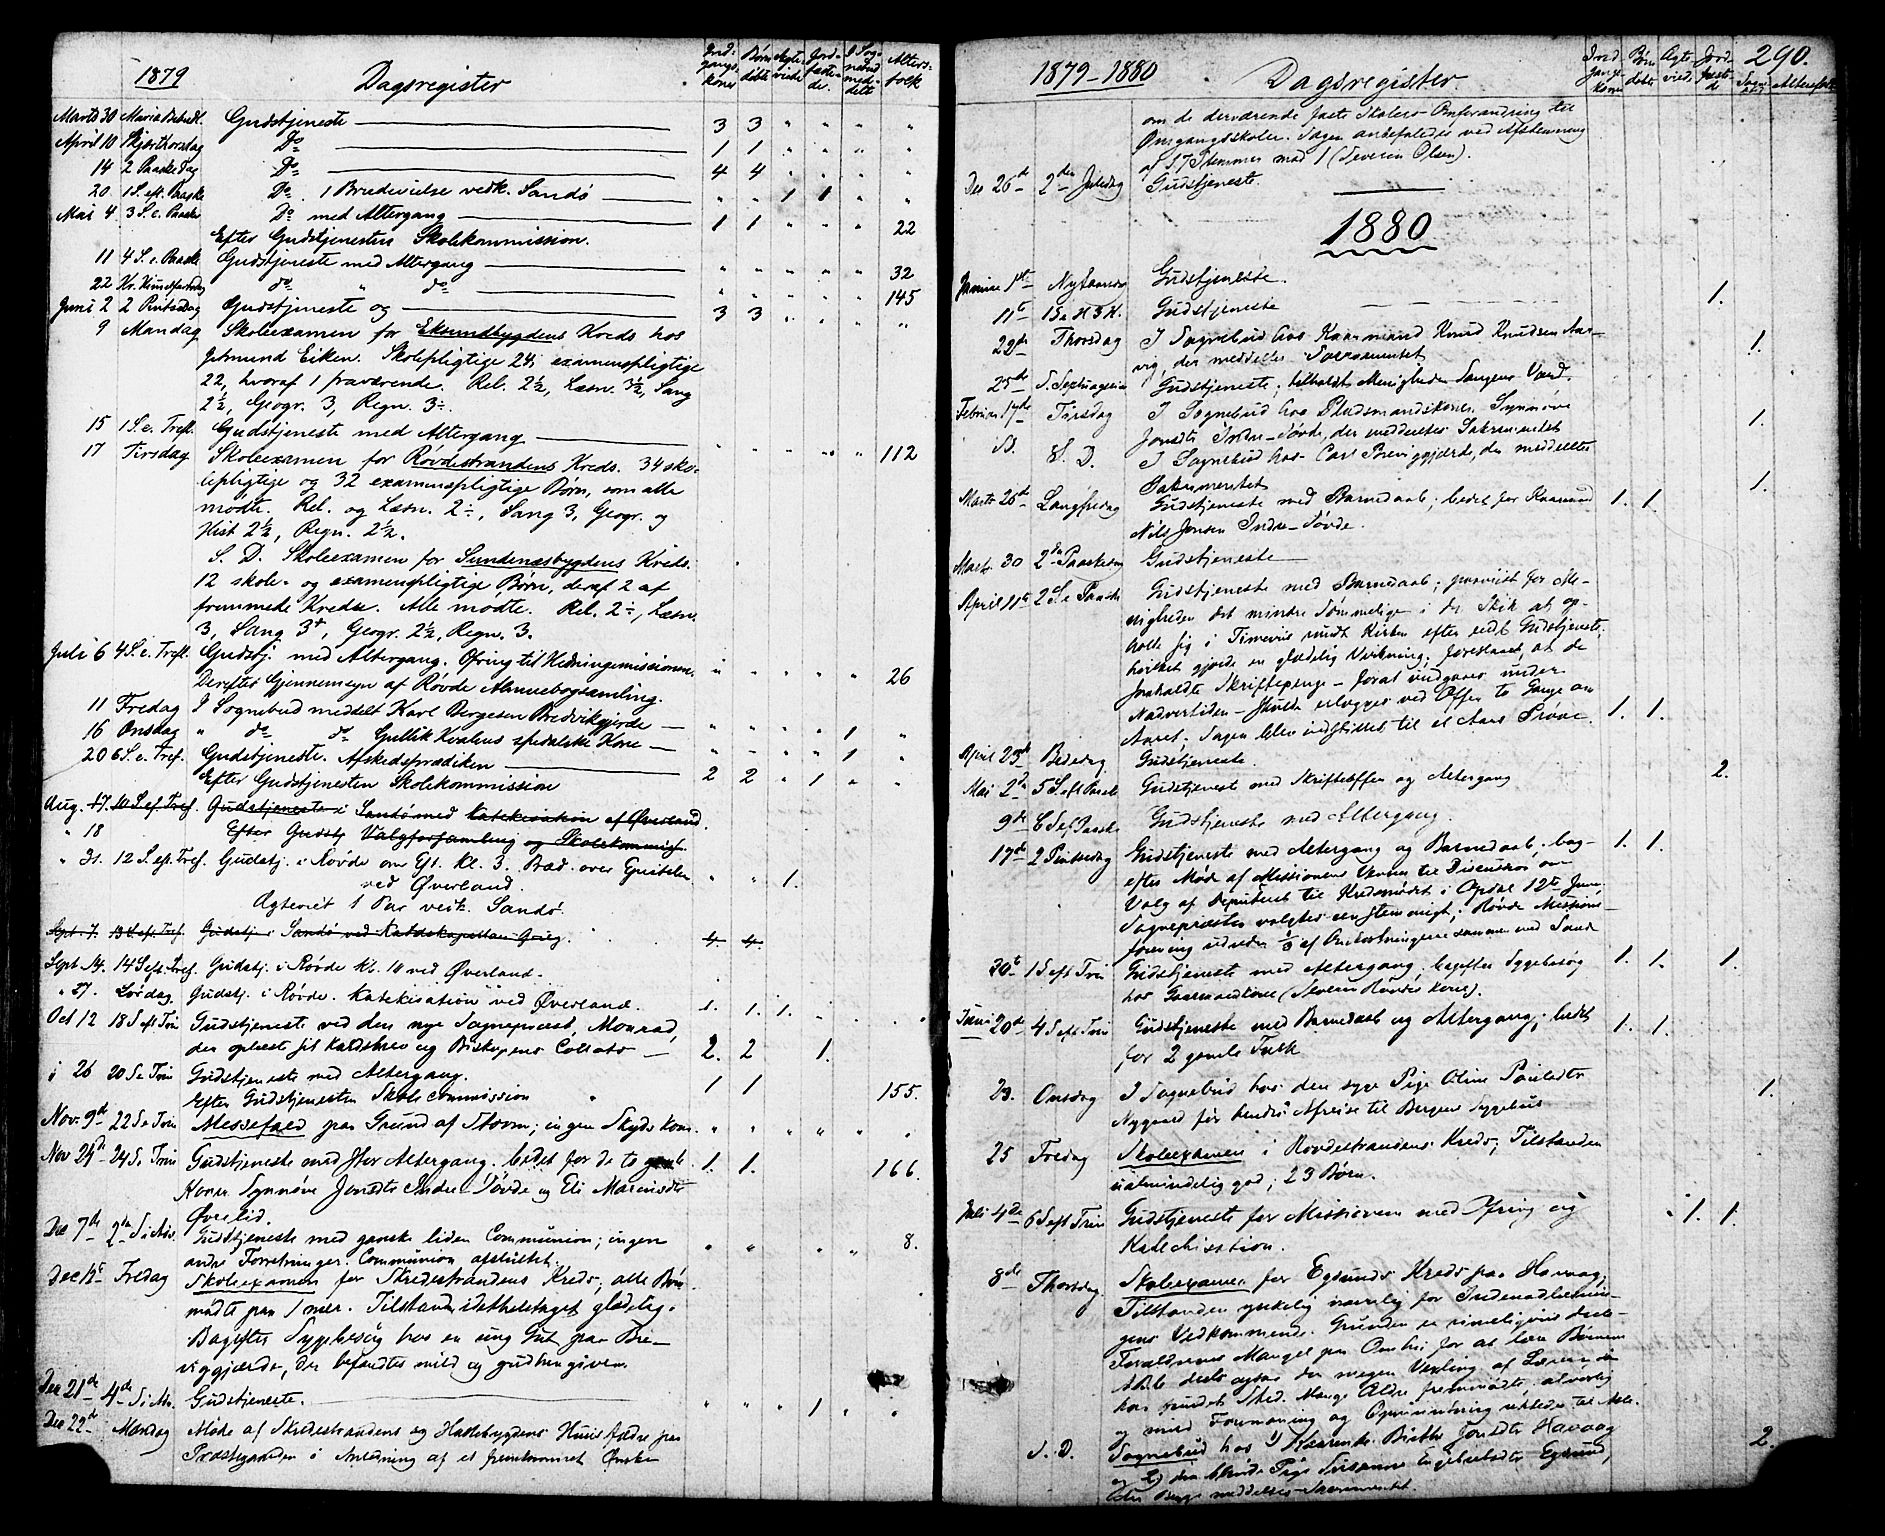 1879 Dagsregister
Ind-gangs-koner Børn døbte Ægte-viede Jord-fæste-de I Sog-nebud med-delt Alters-folk
Marts 30 Mariæ Bebudl. Gudstjeneste 3 3 " " " "
April 10 Skjærthorsdag Do 1 1 " " " "
14 2 Paaskedag Do 4 4 " " " "
20 1 S. eft. Paaske Do. 1 Brudevielse vedk. Sandö " " 1 1 " "
Mai 4 3 S. e. Paaske Do med Altergang 1 1 " " " 22
Efter Gudstjenesten Skolekommission.
11 4 S. e. Paaske Gudstjeneste med Altergang " " " " " 32
22 Kr. Himmelfartsdag do " do " " " " " 145
Juni 2 2 Pintsedag Gudstjeneste og 3 3 " " " "
9 Mandag Skoleexamen for Eksundbygdens Kreds hos
Amund Eiken. Skolepligtige 24; examenspligtige
22, hvoraf 1 fraværende. Rel. 2½, Læsn. 3½, Sang
2½, Geogr. 3, Regn. 3÷.
15 1 S. e. Tref. Gudstjeneste med Altergang " " " " " 112
17 Tirsdag Skoleexamen for Røvdestrandens Kreds. 34 sko-
lepligtige og 32 examenspligtige Börn, som alle
mödte. Rel. og Læsn. 2÷, Sang 3, Geogr. og
Hist 2½, Regn. 2½.
S. D. Skoleexamen for Sundenæsbygdens Kreds.
12 skole- og examenspligtige Börn, deraf 2 af
fremmede Kredse. Alle mödte. Rel. 2÷, Læsn.
3, Sang 3+, Geogr. 2½, Regn. 3.
Juli 6 4 S. e. Tref. Gudstj. med Altergang. Ofring til Hedningemissionen. " " " " " 26
Derefter Gjennemsyn af Røvde Almuebogsamling.
11 Fredag I Sognebud meddelt Karl Børgesen Bredvikgjerde " " " " 1 "
16 Onsdag " do do Gullik Kvalens spedalske Kone " " " " 1 "
20 6 S. e. Tref. Gudstjeneste. Afskedsprædiken 2 2 " 1 " "
Efter Gudstjenesten Skolekommission
Aug. 17. 10 S. ef. Tref. Gudstjeneste i Sandö med Katekisation af Øverland.
" 18 Efter Gudstj Valgforsamling og Skolekommisj.
" 31. 12 S. ef. Tref. Gudstj. i Røvde om Eft. Kl. 3. Præd. over Epistelen " " 1.
ved Øverland.
Ægteviet 1 Par vedk. Sandö.
Sept. 7. 13 S. eft. Tref. Gudstj. i Sandö ved Katedskapellan Grieg. 4 4.
Sept 14. 14 S eft. Tref. Gudstj. i Røvde kl. 10 ved Øverland.
" 27. Lördag Gudstj. i Røvde. Katekisation ved Øverland. 1. 1. 1.
Oct 12 18 S eft Trin Gudstjeneste ved den nye Sognepræst, Monrad,
der oplæste sit Kaldsbrev og Biskopens Collats 2. 2 1.
" 26 20 S e Trin Gudstjeneste med Altergang. 1 1 155.
Efter Gudstjenesten Skolecommission
Nov. 9de 22 S e Trin Messefald paa Grund af Storm; ingen Skyds kom. " " " " " "
Nov 24de 24 S e Trin Gudstjeneste med stor Altergang. bedet for de to gamle 1. 1. 166.
Koner Synnöve Jonsdtr Indre-Søvde og Eli Mariusdtr
Øvrelid.
Dec 7de 2den S i Adv. Gudstjeneste med ganske liden Communion; ingen " " " " 8.
andre Forretninger. Communion afsluttet.
Dec 12te Fredag Skoleexamen for Skredestrandens Kreds, alle Börn
mødte paa 1 nær. Tilstanden idetheletaget glædelig.
Bagefter Sygebesøg hos en ung Gut paa Bre-
viggjærde, der befandtes mild og gudhengiven.
Dec 21de 4de S i Adv. Gudstjeneste. " " " 1 " "
Dec 22de Mandag Møde af Skredestrandens og Hallebygdens Huusfædre paa
Præstegaarden i Anledning af et fremkommet Ønske
1879-1880 Dagsregister. 290.
Ind gangs koner Børn døbte Ægt. vied. Jord-fæste-de Altersfolk
om de derværende faste Skolers Omforandring til
Omgangsskoler. Sagen anbefaledes ved Afstemning
af 17 Stemmer mod 1 (Severin Olsen).
Dec 26de 2den Juledag Gudstjeneste.
1880
Januar 1ste Nytaarsdag Gudstjeneste.
11te 1 S e H 3 K. Gudstjeneste 1.
22de Thorsdag I Sognebud hos Kaarmand Knud Knudsen Aar-
vig, der meddeltes Sacramentet 1.
25de S. Septuagesima Gudstjeneste; tilholdt Menigheden Sangens Værd.
Februar 17de Tirsdag I Sognebud hos Pladsmandskonen Synnøve
Jonsdtr Indre-Søvde, der meddeltes Sakramentet 1.
S. D. I Sognebud hos Carl Breviggjærde, der meddeltes
Sakramentet 1.
Marts 26de Langfredag Gudstjeneste med Barnedaab; bedet for Kaarmand 1. 1.
Nils Jonsen Indre-Søvde.
Marts 30 2den Paaskedag Gudstjeneste
April 11te 2 S e Paaske Gudstjeneste med Barnedaab; paaviist for Me-
nigheden det mindre Sømmelige i den Skik at op-
holde sig i Timevis rundt Kirken efter endt Gudstjeneste;
hvilket gjorde en glædelig Virkning; foreslaaet, at de
forhadte Skriftepenge forat undgaaes under
Nadvertiden skulde erlægges ved Offer to Gange om
Aaret; Sagen blev indstillet til et Aars Prøve. 1. 1.
April 23de Bededag Gudstjeneste.
Mai 2den 5 S eft Paaske Gudstjeneste med Skrifteoffer og Altergang 2.
9de 6 S ef Paaske Gudstjeneste med Altergang.
17de 2 Pintsedag Gudstjeneste med Altergang og Barnedaab; bag- 1. 1.
efter Møde af Missionens Venner til Discussion om
Valg af Deputeret til Kredsmødet i Opdal 12te Juni;
Sognepræsten valgtes eenstemmigt; Røvde Missions-
forening udreder 1/3 af Omkostningerne sammen med Sandö
30te 1 S eft Trin Gudstjeneste med Altergang; bagefter Sygebesøg 1. 1. 1.
hos Gaardmandskone (Severin Røvdes Kone).
Juni 20de 4 S eft Trin Gudstjeneste med Barnedaab og Altergang; bedet 1. 1.
for 2 gamle Folk
23. Onsdag I Sognebud hos den syge Pige Oline Paulsdtr 1.
Nygaard før hendes Afreise til Bergens Sygehus
25 Fredag Skoleexamen i Røvdestrandens Kreds; Tilstanden
ualmindelig god; 23 Børn.
Juli 4de 6 S eft Trin Gudstjeneste for Missionen med Ofring og 1. 1.
Katechisation.
8de Thorsdag Skoleexamen for Egsunds Kreds paa Havaag;
Tilstanden ynkelig navnlig for Indenadlæsnin-
gens Vedkommende. Grunden er rimeligviis deels
Forældrenes Mangel paa Omhu for at lære Børnene
Abc deels ogsaa den megen Vexling af Lærere der
har fundet Sted. Mange Ældre fremmødte; alvorlig
og mild Formaning og Opmuntring uddeltes til Alle.
S. D. Sognebud hos 1) Kaarenke Birthe Jonsdtr Havaag 2.
og 2) den blinde Pige Susanne Engebretsdtr Egsund;
der Begge meddeltes Sacramentet.